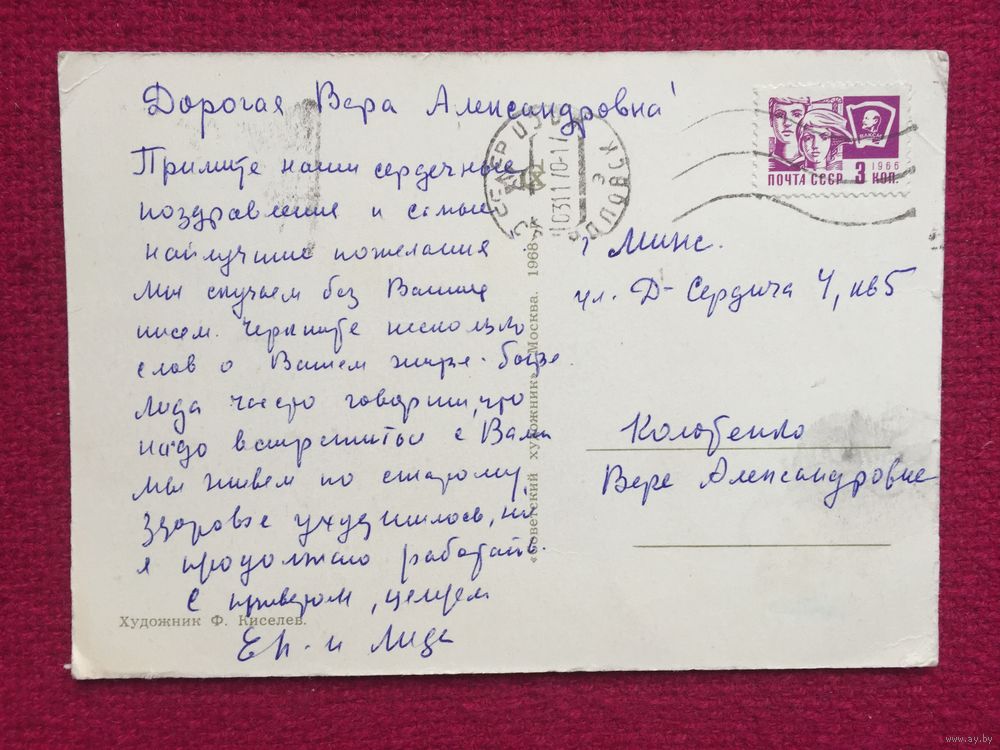 Дорогая Вера Александровна!
Примите наши сердечные
поздравления и самые
наилучшие пожелания
Мы скучаем без Ваших
писем. Черкните несколько
слов о Вашем житье-бытье.
Лида часто говорит, что
надо встретиться с Вами
Мы живем по старому.
Здоровье ухудшилось, но
я продолжаю работать.
С приветом, целуем
и Лида
Художник Ф. Киселев.
«Советский художник». Москва. 1968
ПОЧТА СССР 3 КОП.
1966
ВЛКСМ
г. Минс.
ул. Д-Сердича 4, кв 5
Колобенко
Вере Александровне
www.ay.by